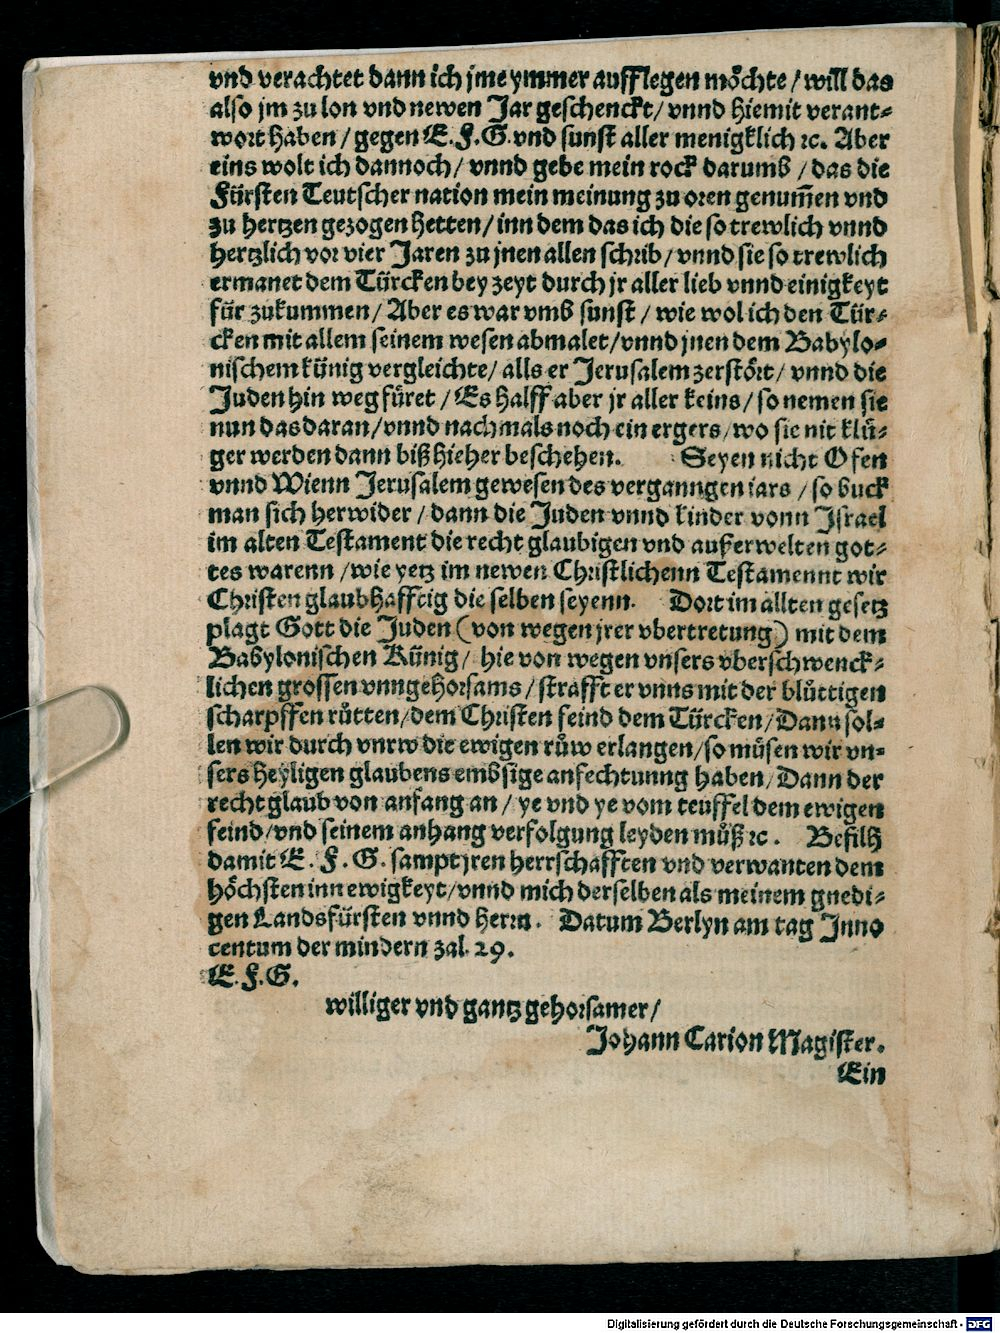 vnd verachtet dann ich jme ymmer aufflegen möchte / will das
also jm zu lon vnd newen Jar geschenckt / vnnd hiemit verant⸗
wort haben / gegen E. F. G. vnd sunst aller menigklich ꝛc. Aber
eins wolt ich dannoch / vnnd gebe mein rock darumb / das die
Fürsten Teutscher nation mein meinung zu oren genum̄en vnd
zu hertzen gezogen hetten / inn dem das ich die so trewlich vnnd
hertzlich vor vier Jaren zu jnen allen schrib / vnnd sie so trewlich
ermanet dem Türcken bey zeyt durch jr aller lieb vnnd einigkeyt
für zukummen / Aber es war vmb sunst / wie wol ich den Tür⸗
cken mit allem seinem wesen abmalet / vnnd jnen dem Babylo⸗
nischem künig vergleichte / alls er Jerusalem zerstört / vnnd die
Juden hin weg füret / Es halff aber jr aller keins / so nemen sie
nun das daran / vnnd nachmals noch ein ergers / wo sie nit klü⸗
ger werden dann biß hieher beschehen. Seyen nicht Ofen
vnnd Wienn Jerusalem gewesen des verganngen iars / so buck
man sich herwider / dann die Juden vnnd kinder vonn Israel
im alten Testament die recht glaubigen vnd außerwelten got⸗
tes warenn / wie yetz im newen Christlichenn Testamennt wir
Christen glaubhafftig die selben seyenn. Dort im allten gesetz
plagt Gott die Juden (von wegen jrer vbertretung) mit dem
Babylonischen Künig / hie von wegen vnsers vberschwenck⸗
lichen grossen vnngehorsams / strafft er vnns mit der blůttigen
scharpffen růtten / dem Christen feind dem Türcken / Dann sol⸗
len wir durch vnrw die ewigen růw erlangen / so müsen wir vn⸗
sers heyligen glaubens embsige anfechtunng haben / Dann der
recht glaub von anfang an / ye vnd ye vom teuffel dem ewigen
feind / vnd seinem anhang verfolgung leyden můß ꝛc. Befilh
damit E. F. G. sampt jren herrschafften vnd verwanten dem
höchsten inn ewigkeyt / vnnd mich derselben als meinem gnedi⸗
gen Landsfürsten vnnd herrn. Datum Berlyn am tag Inno
centum der mindern zal. 29.
E. F. G.
williger vnd gantz gehorsamer /
Johann Carion Magister.
Ein
Digitalisierung gefördert durch die Deutsche Forschungsgemeinschaft - DFG